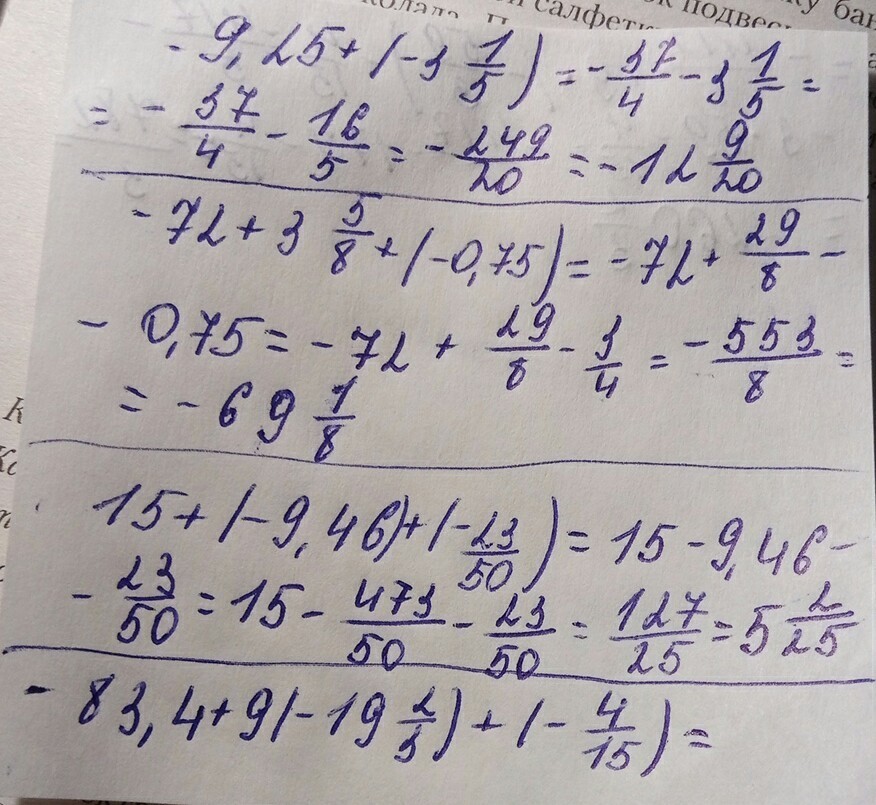 колада. П
салфетк
ок подвес
ку бан
- 9,25 + (-3 1/5) = - 37/4 - 3 1/5 =
= - 37/4 - 16/5 = - 249/20 = - 12 9/20
- 72 + 3 5/8 + (-0,75) = - 72 + 29/8 -
- 0,75 = - 72 + 29/8 - 3/4 = - 553/8 =
= - 69 1/8
15 + (-9,46) + (- 23/50) = 15 - 9,46 -
- 23/50 = 15 - 473/50 - 23/50 = 127/25 = 5 2/25
- 83,4 + 9(-19 2/3) + (- 4/15) =